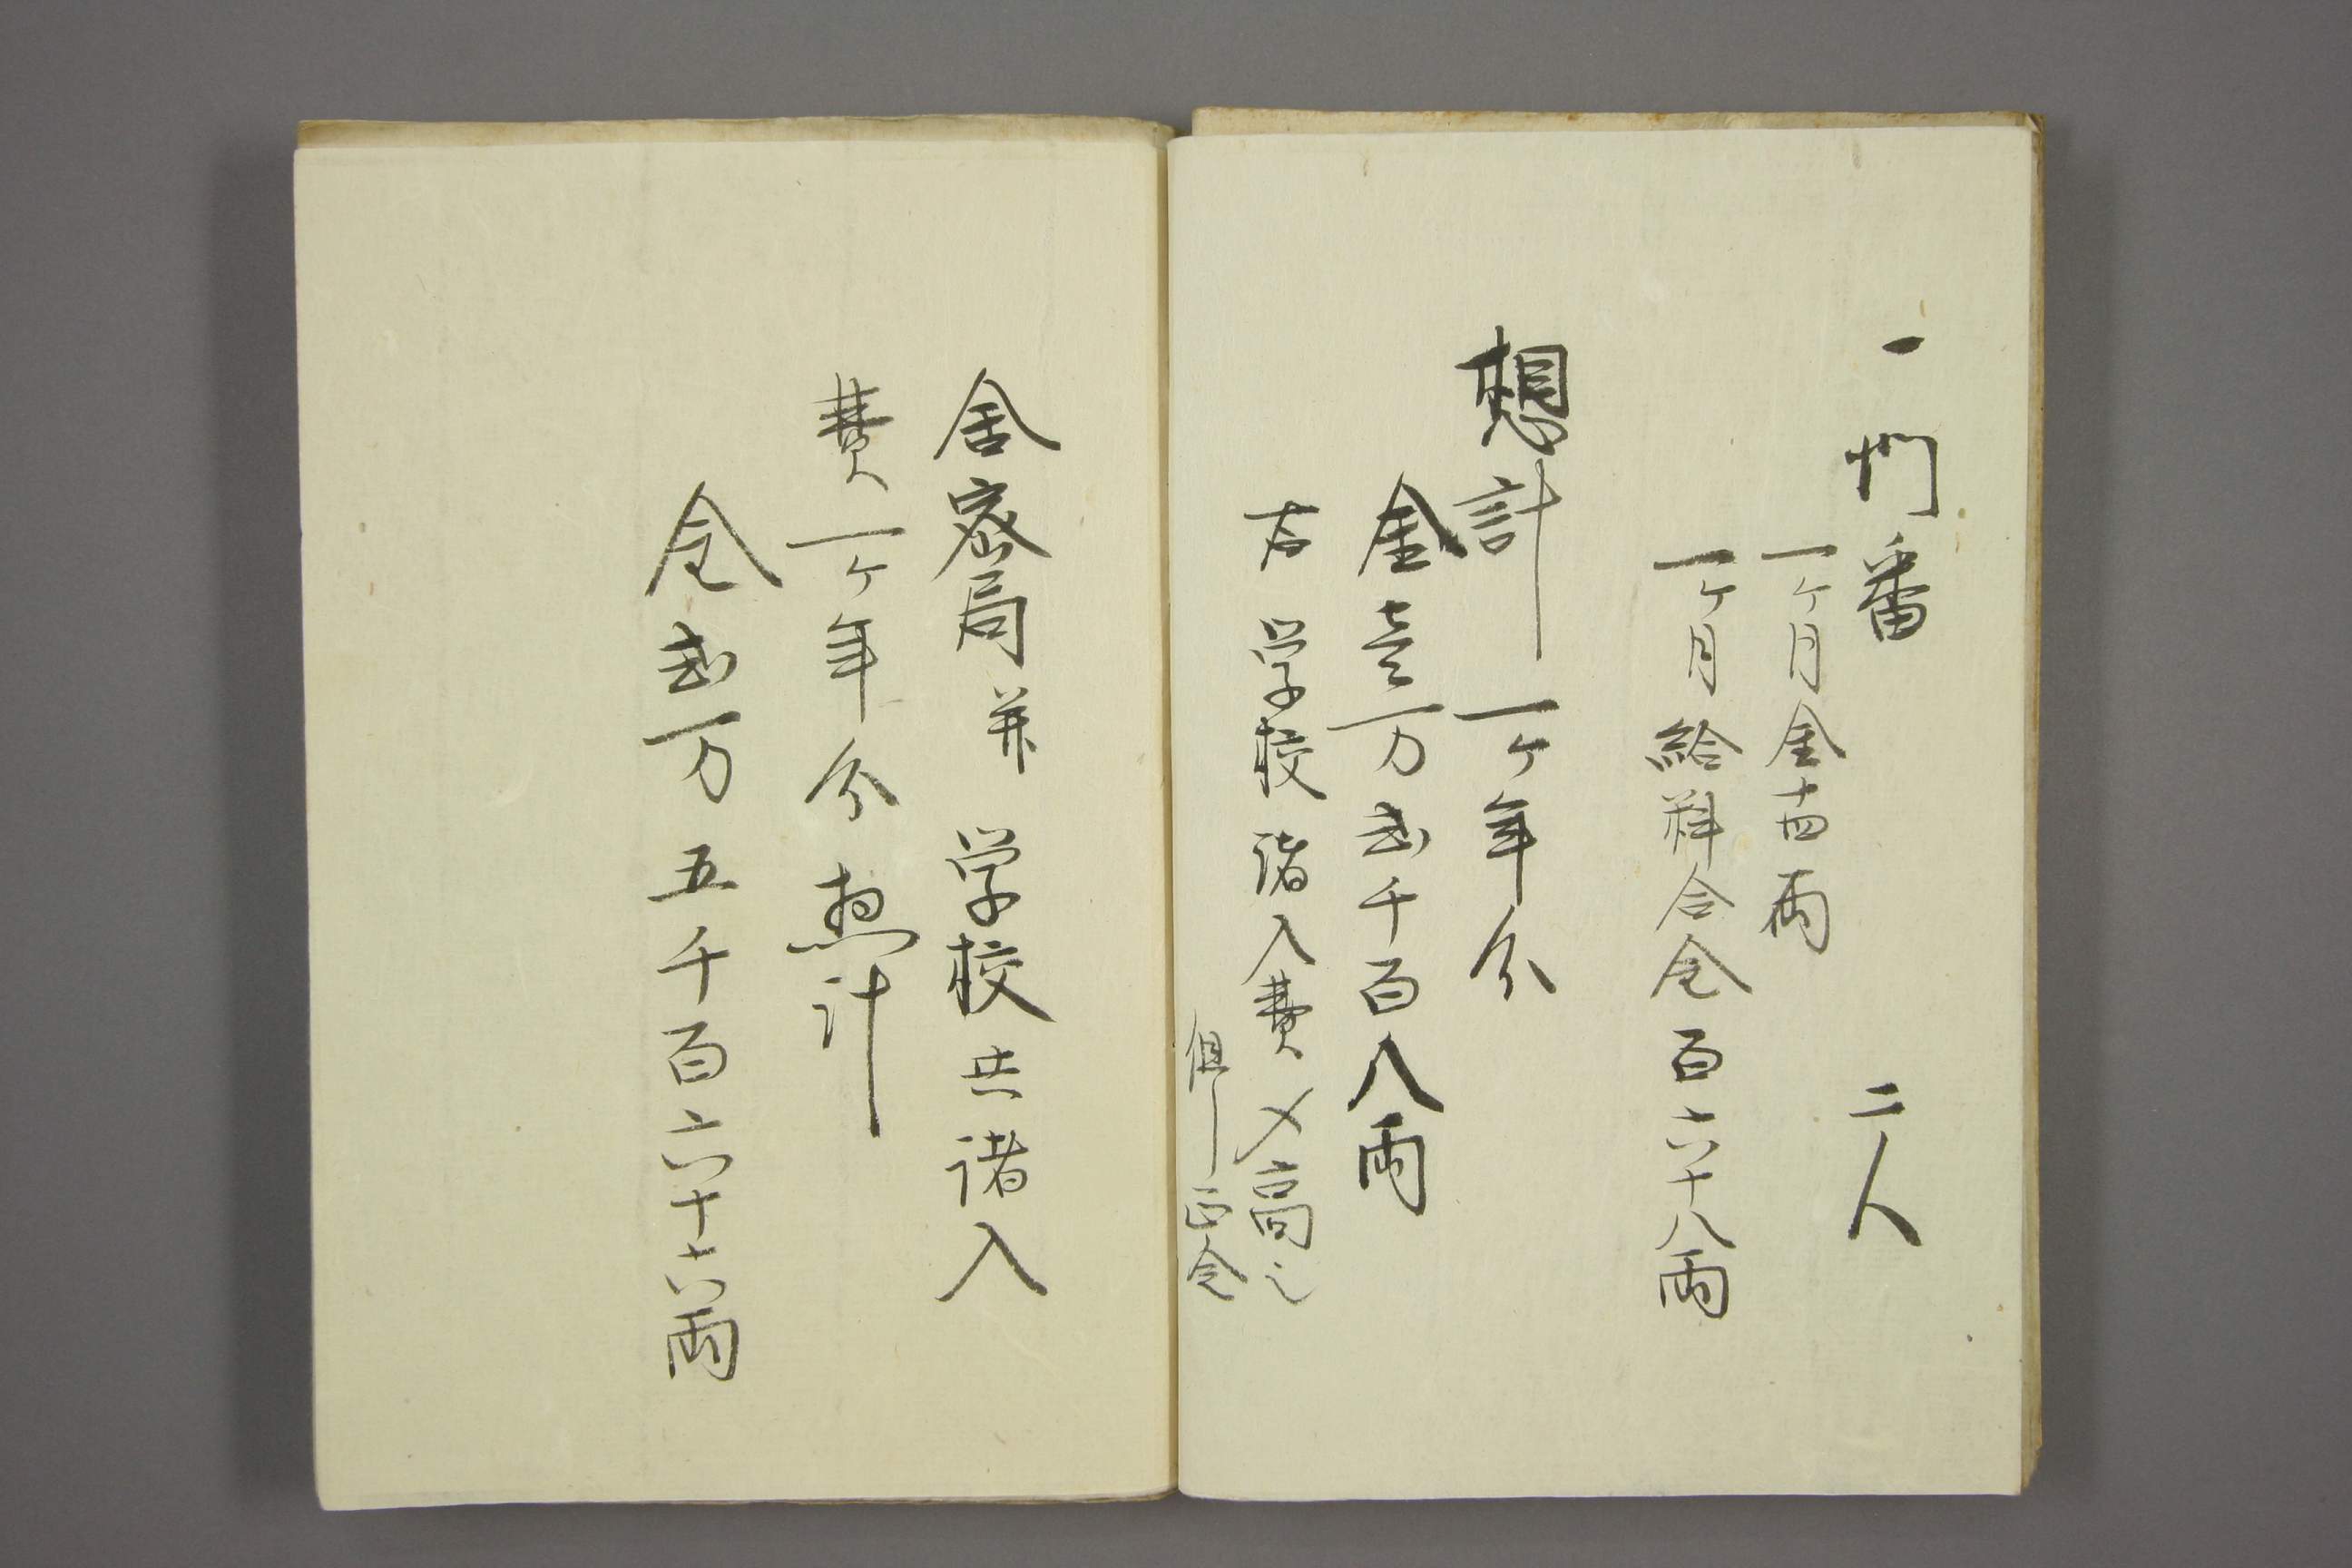 一門番 二人
一ケ月金十四両
一ケ月給料合金百六十八両
想計一ケ年分
金壱万弐千百八両
右学校諸入費〆高之
但シ正金
舎密局并学校共諸入
費一ケ年分惣計
金弐万五千百六十六両